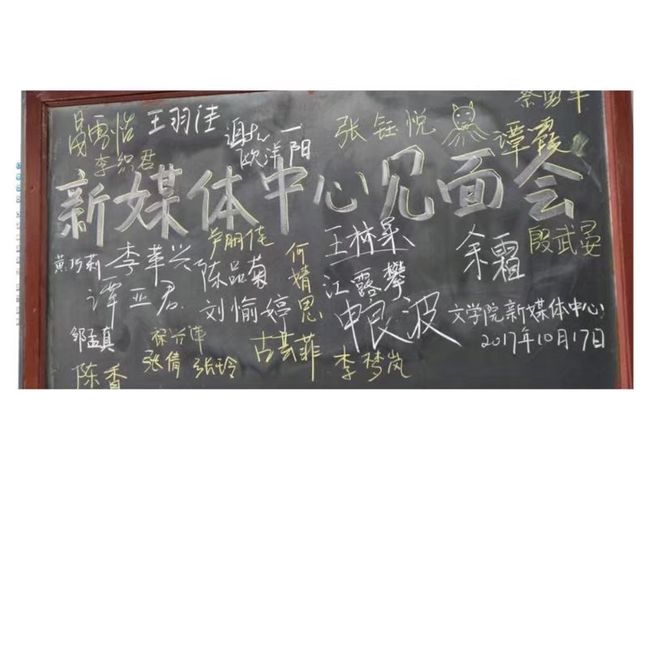 王羽佳
张钰悦
谭霞
李织君
欧洋阳
新媒体中心见面会
李苹兴
陈品菊
何婧思
王林果
余霜
殷武晏
谭亚君
刘愉婷
江露攀
申良波
文学院新媒体中心
2017年10月17日
邹孟真
古芸菲
李梦岚
张倩
张玲
陈香